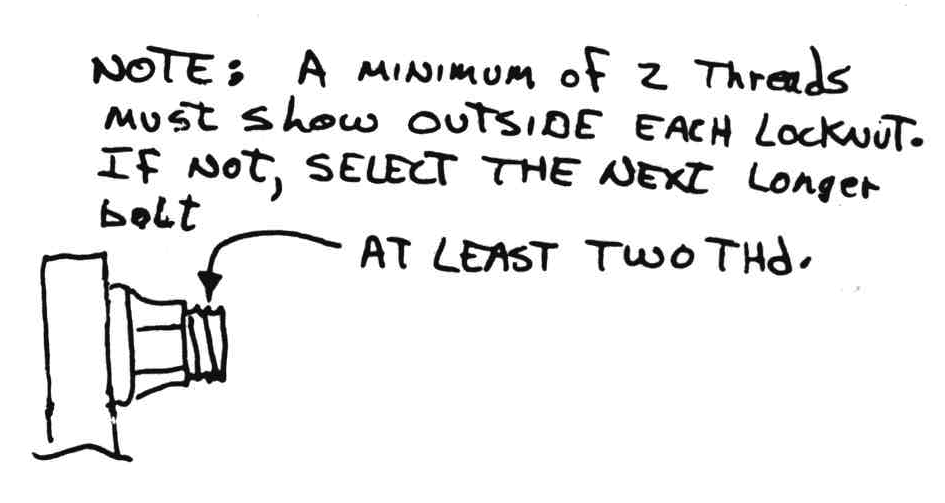 NOTE: A MINIMUM OF 2 Threads
MUST Show OUTSIDE EACH LOCKNUT.
IF NOT, SELECT THE NEXT Longer
bolt
AT LEAST TWO THd.